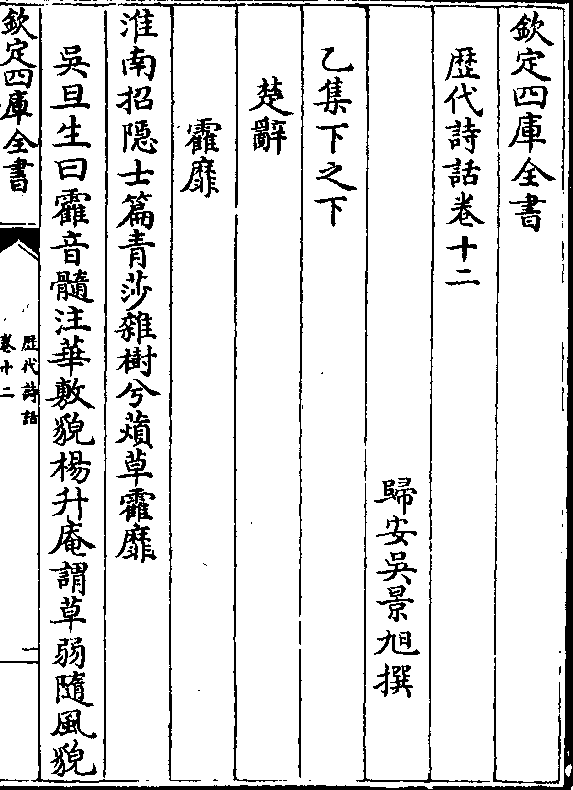 欽定四庫全書
歴代詩話卷十二
歸安吳景旭撰
乙集下之下
楚辭
靃靡
淮南招隱士篇青莎雜樹兮薠草靃靡
吳旦生曰靃音髓注華敷貌楊升庵謂草弱隨風貌
欽定四庫全書
歴代詩話
卷十二
一